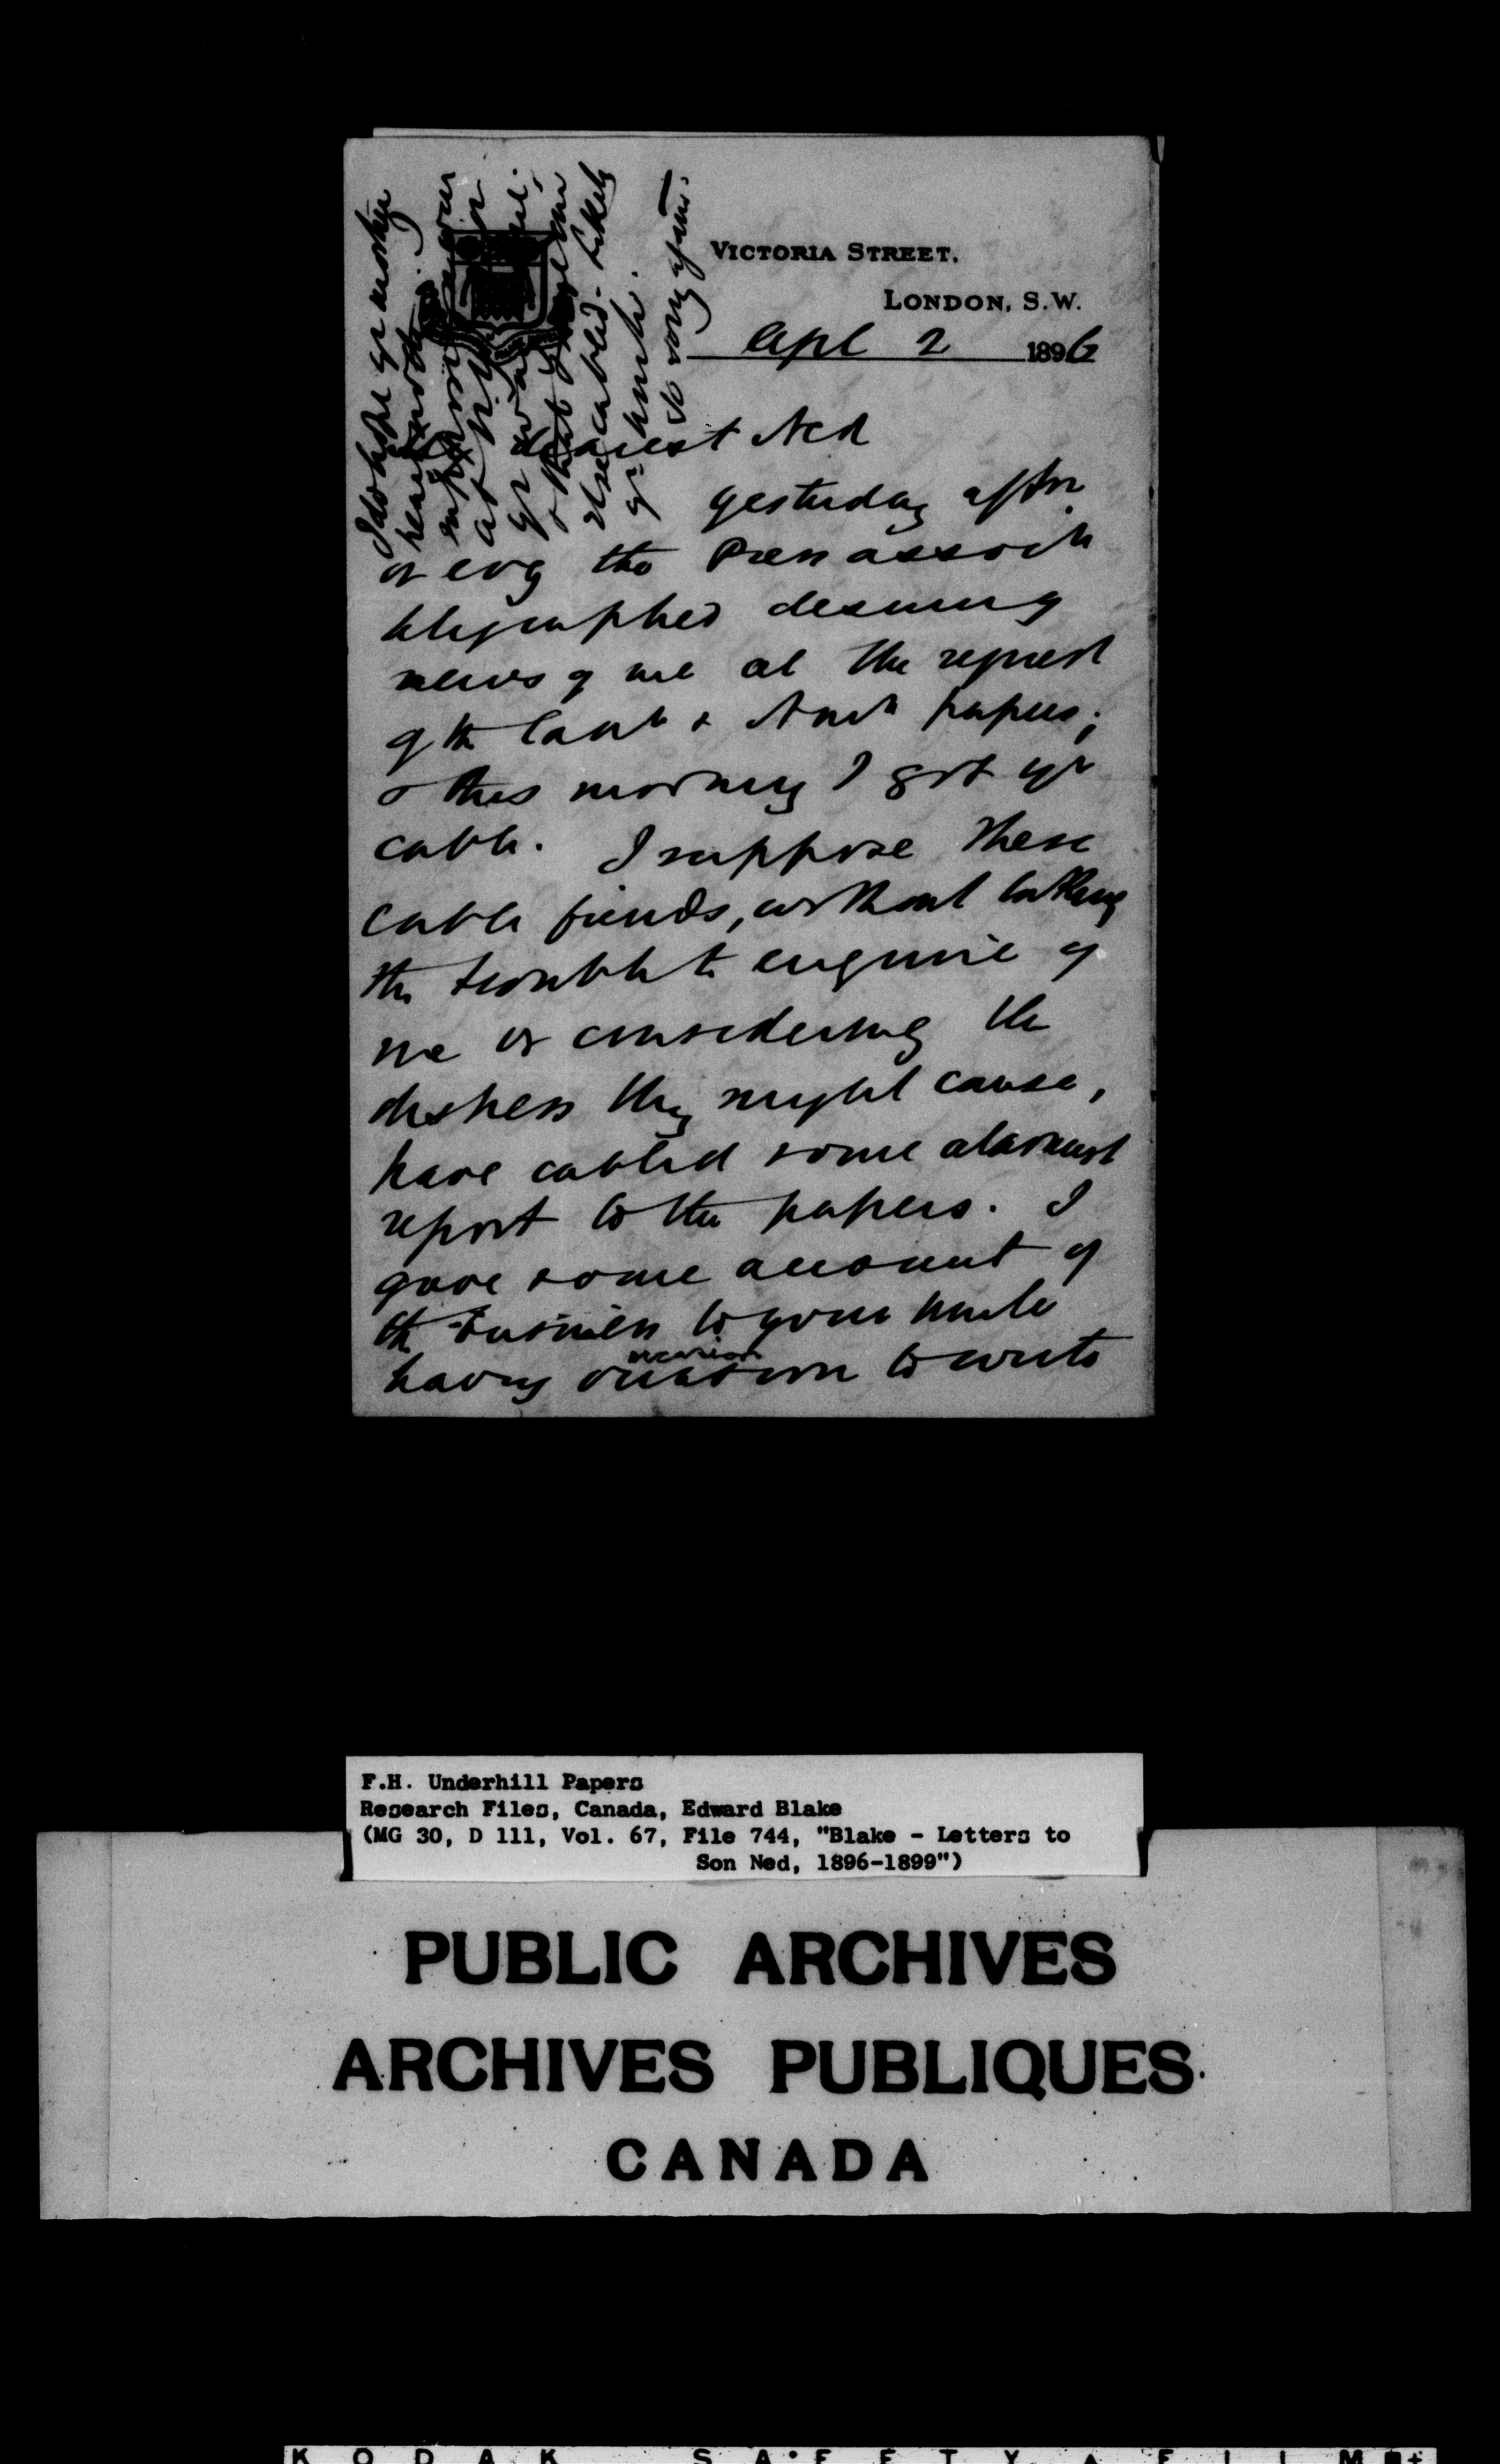 VICTORIA STREET,
LONDON, S.W.
Apl 2 1896
dearest Ned
yesterday aftn
or evg the Press associn
telegraphed desiring
news of me at the request
of the Cann & Amn papers;
& this morning I got yr
cable. I suppose these
cable fiends, without taking
the trouble to enquire of
me or considering the
distress they might cause,
have cabled some alarmist
report to the papers. I
gave some account of
the business to your uncle
occasion
having occasion to write
I do hope yr mother
heard
at
yr
& that
else cabled - likely
yr uncle.
So sorry again.
F.H. Underhill Papers
Research Files, Canada, Edward Blake
(MG 30, D 111, Vol. 67, File 744, "Blake - Letters to
Son Ned, 1896-1899")
PUBLIC ARCHIVES
ARCHIVES PUBLIQUES
CANADA
KODAK SAFETY FILM